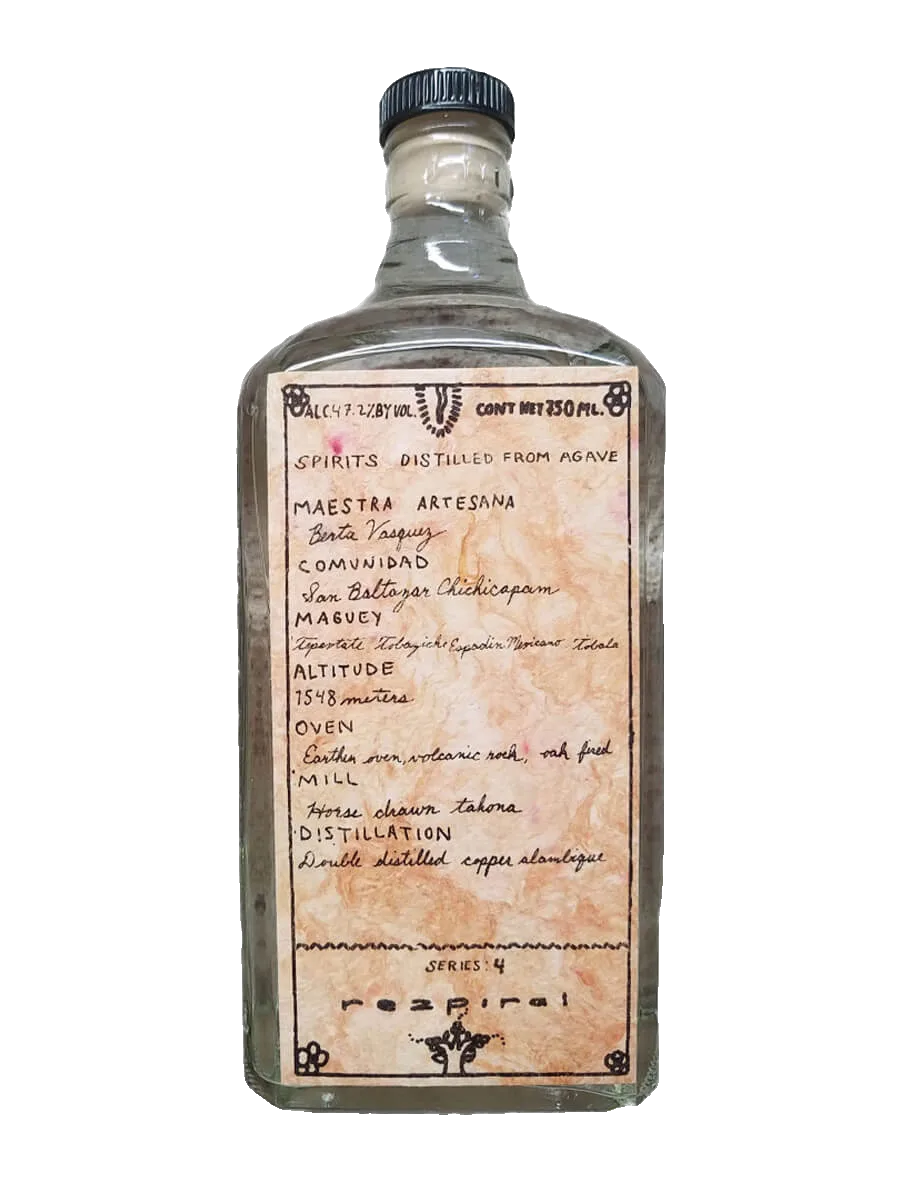 ALC.47.2% BY VOL. CONT NET 750 ML.
SPIRITS DISTILLED FROM AGAVE
MAESTRA ARTESANA
Berta Vasquez
COMUNIDAD
San Baltazar Chichicapam
MAGUEY
Tepextate Tobaziche Espadin Mexicano Tobala
ALTITUDE
1548 meters
OVEN
Earthen oven, volcanic rock, oak fired
MILL
Horse drawn tahona
DISTILLATION
Double distilled copper alambique
SERIES: 4
rezpiral